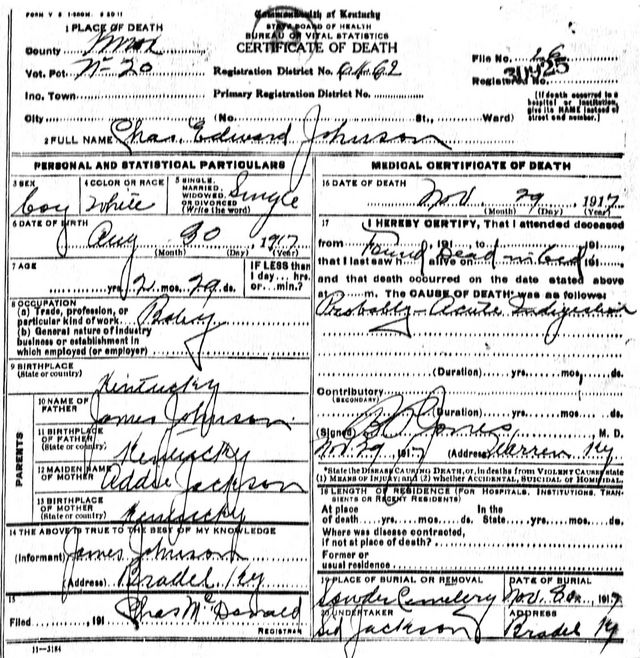 FORM V S 1-
Commonwealth of Kentucky
STATE BOARD OF HEALTH
BUREAU OF VITAL STATISTICS
CERTIFICATE OF DEATH
1 PLACE OF DEATH
County Knox
Vot. Pct. No 20
Inc. Town
City (No. St., Ward)
Registration District No.
Primary Registration District No.
File No.
Registered No.
[If death occurred in a hospital or institution, give its NAME instead of street and number.]
2 FULL NAME Chas. Edward Johnson
PERSONAL AND STATISTICAL PARTICULARS
3 SEX Boy
4 COLOR OR RACE White
5 SINGLE, MARRIED, WIDOWED, OR DIVORCED (Write the word) Single
6 DATE OF BIRTH Aug 30, 1917
(Month) (Day) (Year)
7 AGE yrs. 2 mos. 29 ds.
IF LESS than 1 day... hrs. or... min.?
8 OCCUPATION
(a) Trade, profession, or particular kind of work Baby
(b) General nature of industry business or establishment in which employed (or employer)
9 BIRTHPLACE
(State or country) Kentucky
PARENTS
10 NAME OF FATHER James Johnson
11 BIRTHPLACE OF FATHER (State or country) Kentucky
12 MAIDEN NAME OF MOTHER Addie Jackson
13 BIRTHPLACE OF MOTHER (State or country) Kentucky
14 THE ABOVE IS TRUE TO THE BEST OF MY KNOWLEDGE
(Informant) James Johnson
(Address) Bradel, Ky
15
Filed , 191 Chas McDonald
REGISTRAR
11-3184
MEDICAL CERTIFICATE OF DEATH
16 DATE OF DEATH Nov. 29, 1917
(Month) (Day) (Year)
17 I HEREBY CERTIFY, That I attended deceased
from , 191 , to , 191 ,
that I last saw h alive on , 191 ,
Found Dead in bed
and that death occurred on the date stated above
at m. The CAUSE OF DEATH* was as follows:
Probably Acute Indigestion
(Duration) yrs. mos. ds.
Contributory
(SECONDARY)
(Duration) yrs. mos. ds.
(Signed) Jones M. D.
Nov. 29 1917 (Address) Warren Ky
*State the DISEASE CAUSING DEATH, or, in deaths from VIOLENT CAUSES state
(1) MEANS OF INJURY; and (2) whether ACCIDENTAL, SUICIDAL OR HOMICIDAL.
18 LENGTH OF RESIDENCE (FOR HOSPITALS, INSTITUTIONS, TRANSIENTS OR RECENT RESIDENTS)
At place of death yrs. mos. ds.
In the State yrs. mos. ds.
Where was disease contracted, if not at place of death?
Former or usual residence
19 PLACE OF BURIAL OR REMOVAL
Sowder Cemetery
DATE OF BURIAL
Nov. 30, 1917
20 UNDERTAKER
Jackson
ADDRESS
Bradel Ky